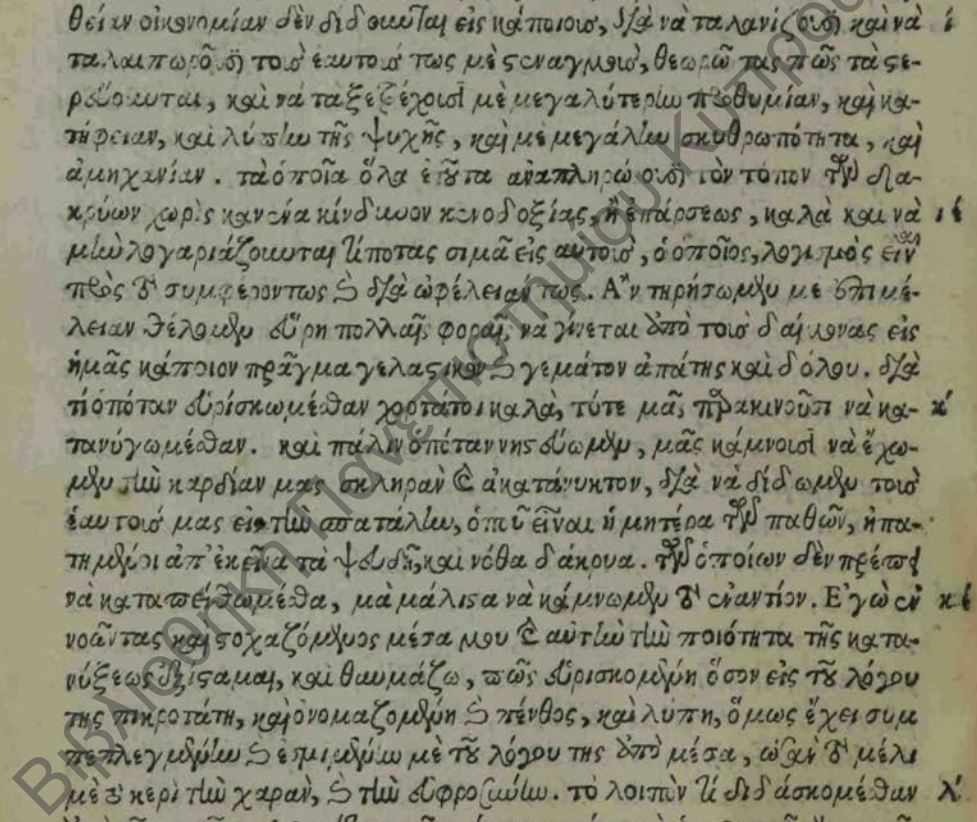 θείαν οἰκονομίαν δὲν δίδουνται εἰς κάποιους, διὰ νὰ ταλανίζουσι καὶ νὰ
ταλαιπωροῦσι τοὺς ἑαυτούς τως μὲ στεναγμούς, θεωρῶντας πῶς τὰ στε-
ρεύουνται, καὶ νὰ τὰ ξεζέχουσι μὲ μεγαλύτερην προθυμίαν, καὶ κα-
τήφειαν, καὶ λύπην τῆς ψυχῆς, καὶ μὲ μεγάλην σκυθρωπότητα, καὶ
ἀμηχανίαν. τὰ ὁποῖα ὅλα ἐτοῦτα ἀναπληρώουσι τὸν τόπον τῶν δα-
κρύων χωρὶς κανένα κίνδυνον κενοδοξίας, ἢ ἐπάρσεως, καλὰ καὶ νὰ ιε
μὴν λογαριάζουνται τίποτας σιμᾶ εἰς αὐτούς, ὁ ὁποῖος, λογισμὸς εἶναι
πρὸς τὸ συμφέροντως καὶ διὰ ὠφέλειάν τως. Ἂν τηρήσωμεν με ἐπιμέ-
λειαν θέλομεν εὕρη πολλαῖς φοραῖς νὰ γίνεται ἀπὸ τοὺς δαίμονας εἰς
ἡμᾶς κάποιον πρᾶγμα γελαστικὸν καὶ γεμάτον ἀπάτης καὶ δόλου. διὰ
τὶ ὁπόταν εὑρίσκωμέσθαν χορτάτοι καλὰ, τότε μᾶς παρακινοῦσι νὰ κα- κ
τανύγωμέσθαν. καὶ πάλιν ὁπόταν νηστεύωμεν, μᾶς κάμνουσι νὰ ἔχω-
μεν τὴν καρδίαν μας σκληρὰν καὶ ἀκατάνυκτον, διὰ νὰ δίδωμεν τοὺς
ἑαυτούς μας εἰς τὴν σπατάλην, ὁποῦ εἶναι ἡ μητέρα τῶν παθῶν, ἠπα-
τημένοι ἀπ' ἐκεῖνα τὰ ψευδῆ, καὶ νόθα δάκρυα. τῶν ὁποίων δὲν πρέπει
νὰ καταπείθωμέσθα, μὰ μάλιστα νὰ κάμνωμεν τὸ ἐναντίον. Ἐγὼ ἐν κε
νοῶντας καὶ στοχαζόμενος μέσα μου καὶ αὐτὴν τὴν ποιότητα τῆς κατα-
νύξεως ἐξίσταμαι, καὶ θαυμάζω, πῶς εὑρισκομένη ὅσον εἰς τοῦ λόγου
της πικροτάτη, καὶ ὀνομαζομένη καὶ πένθος, καὶ λύπη, ὅμως ἔχει συμ
πεπλεγμένην καὶ σμιμένην μὲ τοῦ λόγου της ἀπὸ μέσα, ὡσὰν τὸ μέλι
μὲ τὸ κερὶ τὴν χαρὰν, καὶ τὴν εὐφροσύνην. τὸ λοιπὸν τί διδάσκομέσθαν λ